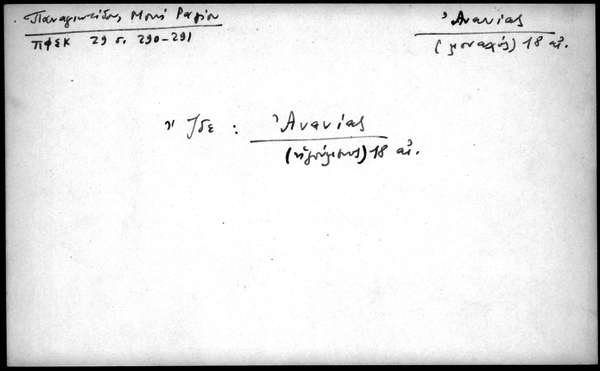 Παναγιωτίδου, Μονή Ραγίου
ΠΦΣΚ 29 σ. 290-291
Ἀνανίας
(μοναχός) 18 αἰ.
Ἴδε : Ἀνανίας
(ἡγούμενος) 18 αἰ.